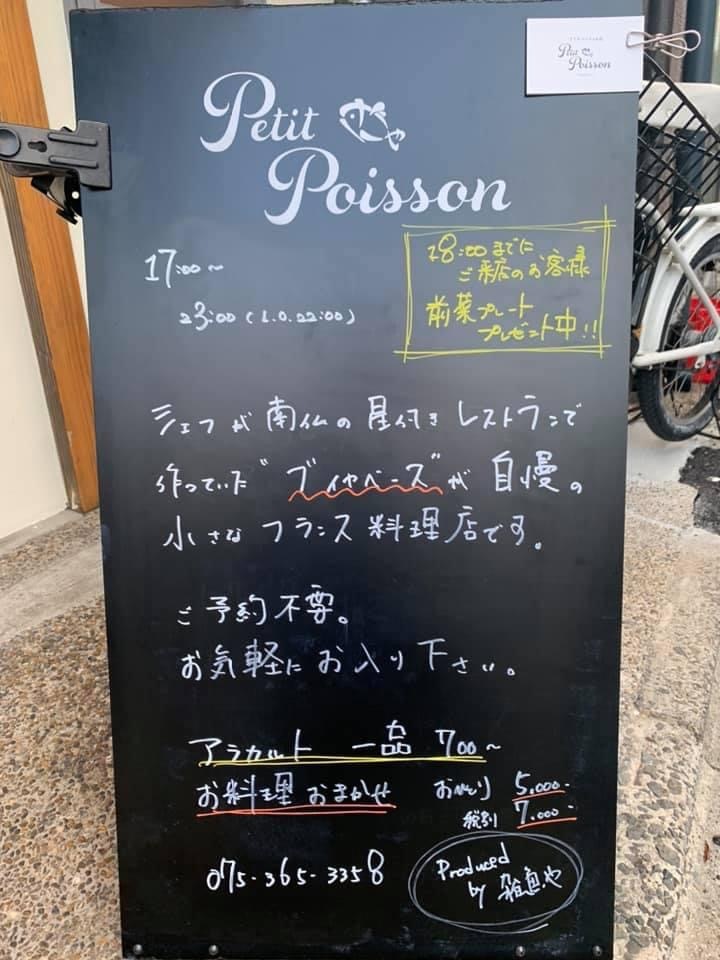 Petit
Poisson
Petit
Poisson
17:00～
23:00(L.O.22:00)
18:00までに
ご来店のお客様
前菜プレート
プレゼント中!!
シェフが南仏の星付きレストランで
作っていた"ブイヤベース"が自慢の
小さなフランス料理店です。
ご予約不要。
お気軽にお入り下さい。
アラカルト 一品 700～
お料理おまかせ おひとり 5,000-
税別 7,000-
075-365-3358
Produced
by